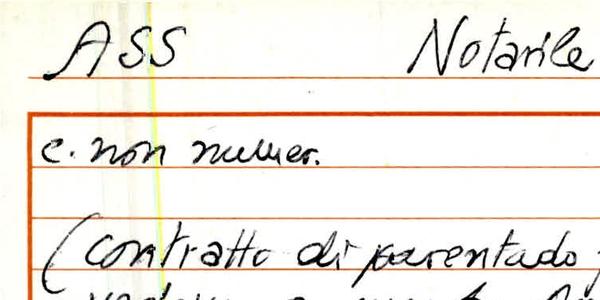 ASS Notarile
c. non numer.
(contratto di parentado